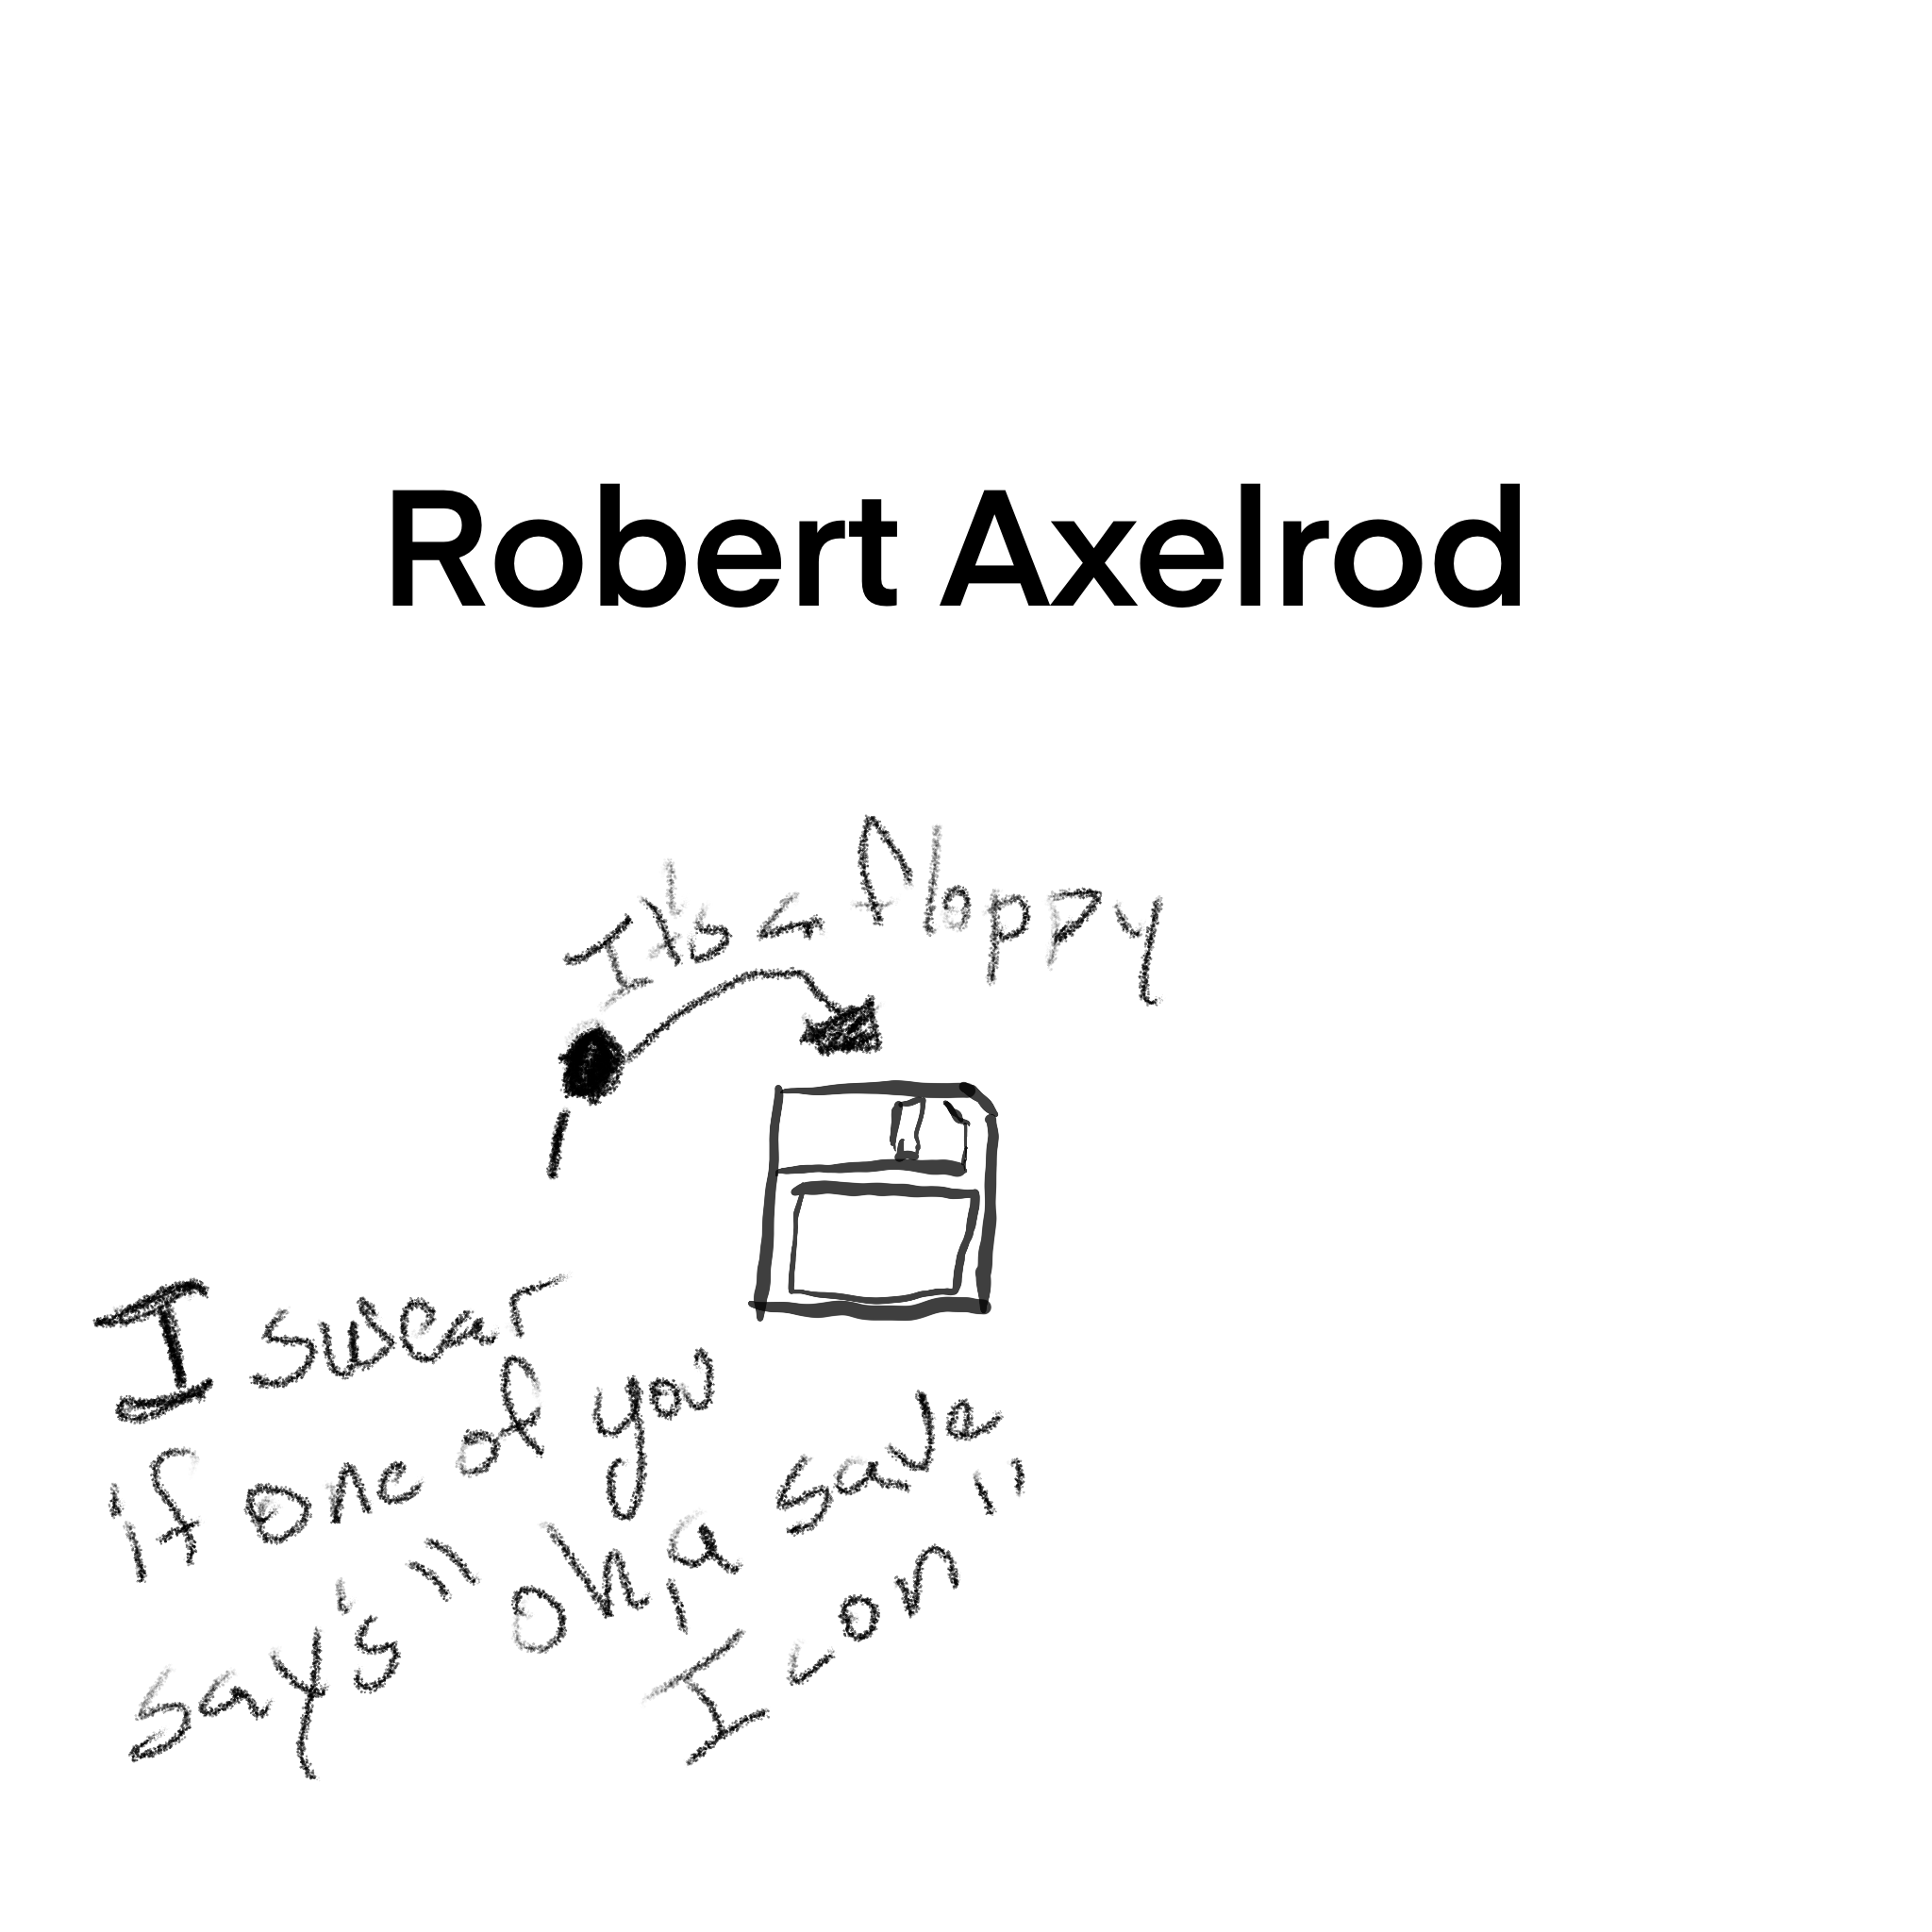 Robert Axelrod
It's a floppy
I swear
if one of you
say's "oh, a save
Icon"